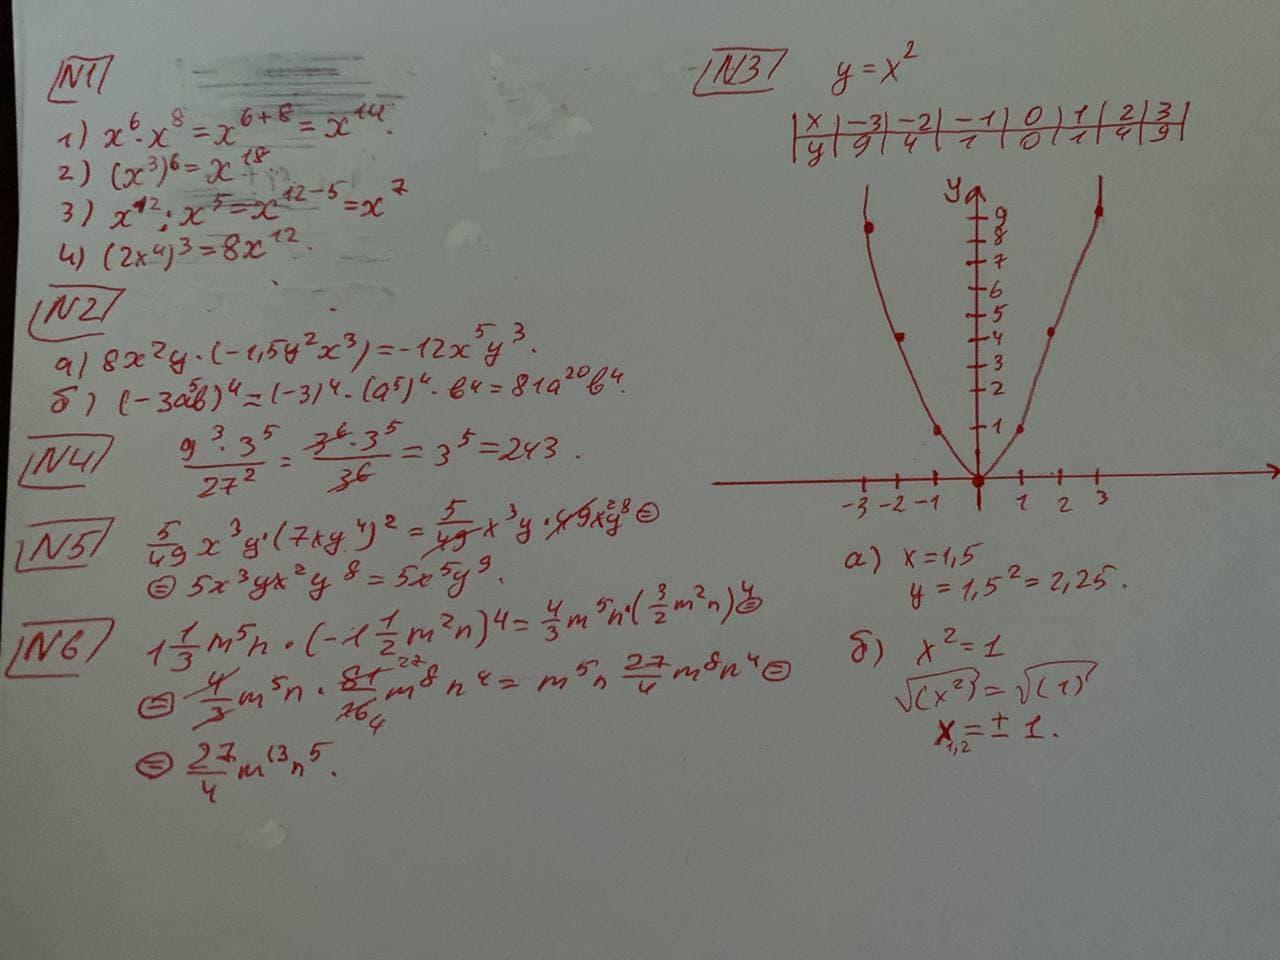 N1
1) x⁶·x⁸=x⁶⁺⁸=x¹⁴.
2) (x³)⁶=x¹⁸.
3) x¹²:x⁵=x¹²⁻⁵=x⁷
4) (2x⁴)³=8x¹².
N2
а) 8x²y·(-1,5y²x³)=-12x⁵y³.
б) (-3a⁵b)⁴=(-3)⁴·(a⁵)⁴·b⁴=81a²⁰b⁴.
N4 9³·3⁵/27² = 3⁶·3⁵/3⁶ = 3⁵=243.
N5 5/49 x³y·(7xy⁴)² = 5/49 x³y·49x²y⁸ ⊜
⊜ 5x³yx²y⁸=5x⁵y⁹.
N6 1 1/3 m⁵n·(-1 1/2 m²n)⁴= 4/3 m⁵n·(3/2 m²n)⁴ ⊜
⊜ 4/3 m⁵n · 81 27/16 4 m⁸n⁴= m⁵n 27/4 m⁸n⁴ ⊜
⊜ 27/4 m¹³n⁵.
N3 y=x²
x -3 -2 -1 0 1 2 3
y 9 4 1 0 1 4 9
y
9
8
7
6
5
4
3
2
1
-3 -2 -1 1 2 3
а) x=1,5
y=1,5²=2,25.
б) x²=1
√(x²)=√(1)
x₁,₂=±1.